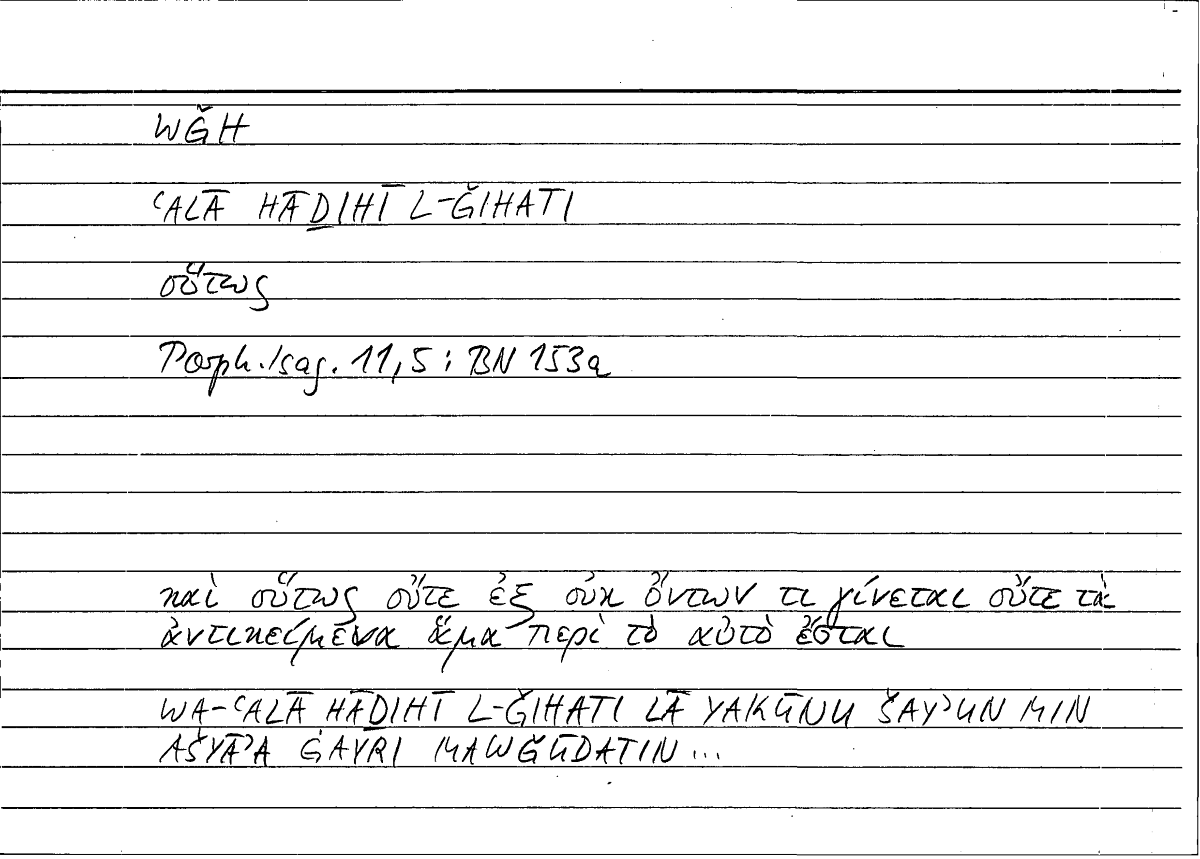 WǦH
ʿALĀ HĀḎIHĪ L-ǦIHATI
οὕτως
Porph. Isag. 11,5 : BN 153a
καὶ οὕτως οὔτε ἐξ οὐκ ὄντων τι γίνεται οὔτε τὰ
ἀντικείμενα ἅμα περὶ τὸ αὐτὸ ἔσται
WA-ʿALĀ HĀḎIHĪ L-ǦIHATI LĀ YAKŪNU ŠAYʾUN MIN
AŠYĀʾA ĠAYRI MAWǦŪDATIN ...